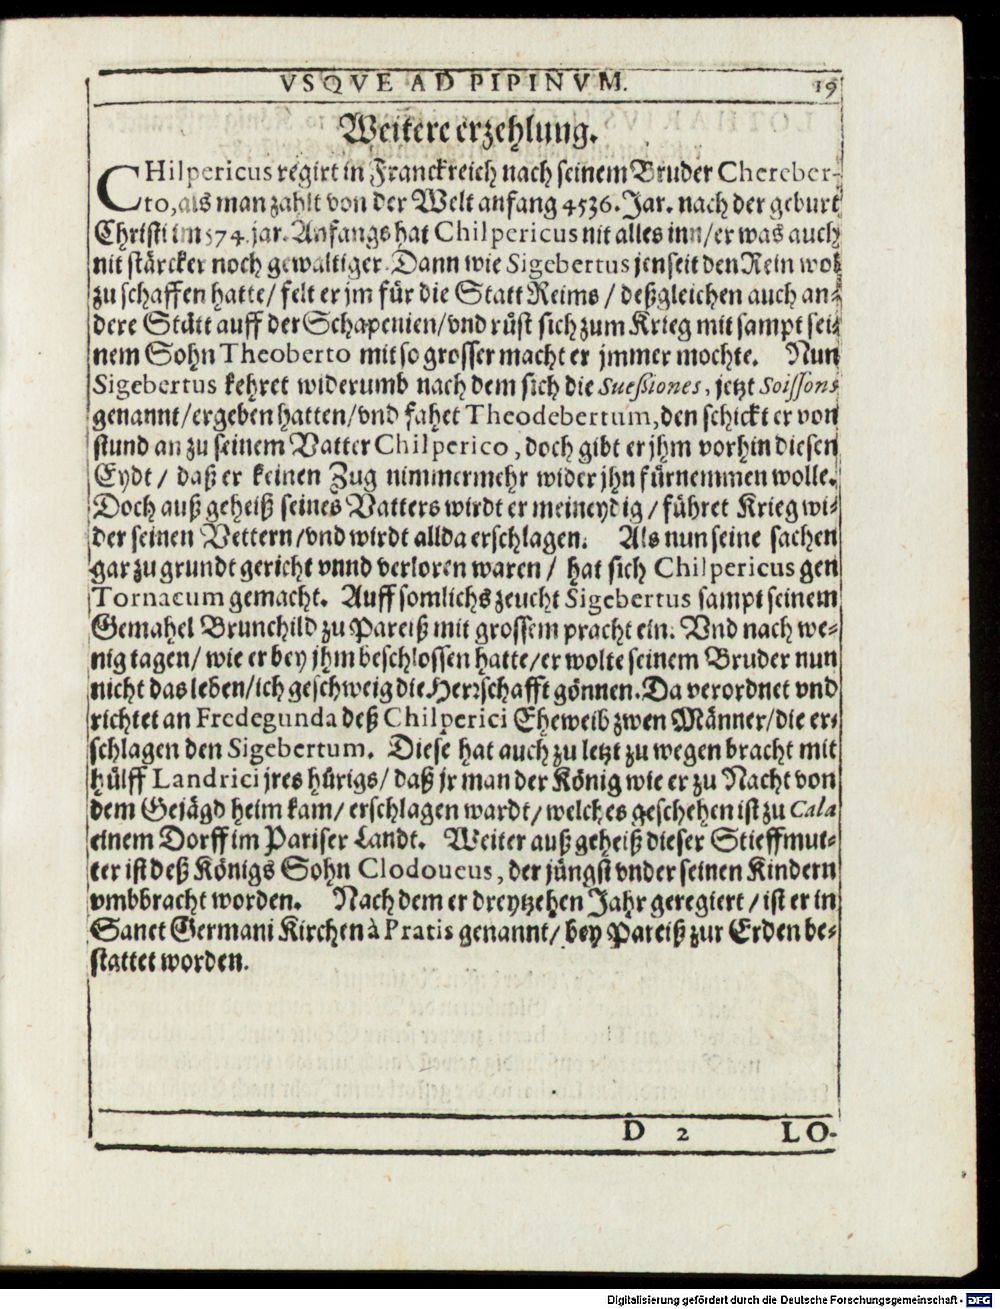 VSQVE AD PIPINVM. 19
Weitere erzehlung.
CHilpericus regirt in Franckreich nach seinem Bruder Chereber-
to, als man zahlt von der Welt anfang 4536. Jar. nach der geburt
Christi im 574. jar. Anfangs hat Chilpericus nit alles inn/ er was auch
nit stärcker noch gewaltiger. Dann wie Sigebertus jenseit den Rein wol
zu schaffen hatte/ felt er jm für die Statt Reims / deßgleichen auch an-
dere Stätt auff der Schapenien/ vnd rüst sich zum Krieg mit sampt sei-
nem Sohn Theoberto mit so grosser macht er jmmer mochte. Nun
Sigebertus kehret widerumb nach dem sich die Sueßiones, jetzt Soissons
genannt/ ergeben hatten/ vnd fahet Theodebertum, den schickt er von
stund an zu seinem Vatter Chilperico, doch gibt er jhm vorhin diesen
Eydt / daß er keinen Zug nimmermehr wider jhn fürnemmen wolle.
Doch auß geheiß seines Vatters wirdt er meineydig / führet Krieg wi-
der seinen Vettern/ vnd wirdt allda erschlagen. Als nun seine sachen
gar zu grundt gericht vnnd verloren waren / hat sich Chilpericus gen
Tornacum gemacht. Auff somlichs zeucht Sigebertus sampt seinem
Gemahel Brunchild zu Pareiß mit grossem pracht ein. Vnd nach we-
nig tagen/ wie er bey jhm beschlossen hatte/ er wolte seinem Bruder nun
nicht das leben/ ich geschweig die Herrschafft gönnen. Da verordnet vnd
richtet an Fredegunda deß Chilperici Eheweib zwen Männer/ die er-
schlagen den Sigebertum. Diese hat auch zu letzt zu wegen bracht mit
hülff Landrici jres hürigs/ daß jr man der König wie er zu Nacht von
dem Gejägd heim kam/ erschlagen wardt/ welches geschehen ist zu Cala
einem Dorff im Pariser Landt. Weiter auß geheiß dieser Stieffmut-
ter ist deß Königs Sohn Clodoueus, der jüngst vnder seinen Kindern
vmbbracht worden. Nach dem er dreytzehen Jahr geregiert / ist er in
Sanct Germani Kirchen à Pratis genannt/ bey Pareiß zur Erden be-
stattet worden.
D 2 LO-
Digitalisierung gefördert durch die Deutsche Forschungsgemeinschaft - DFG